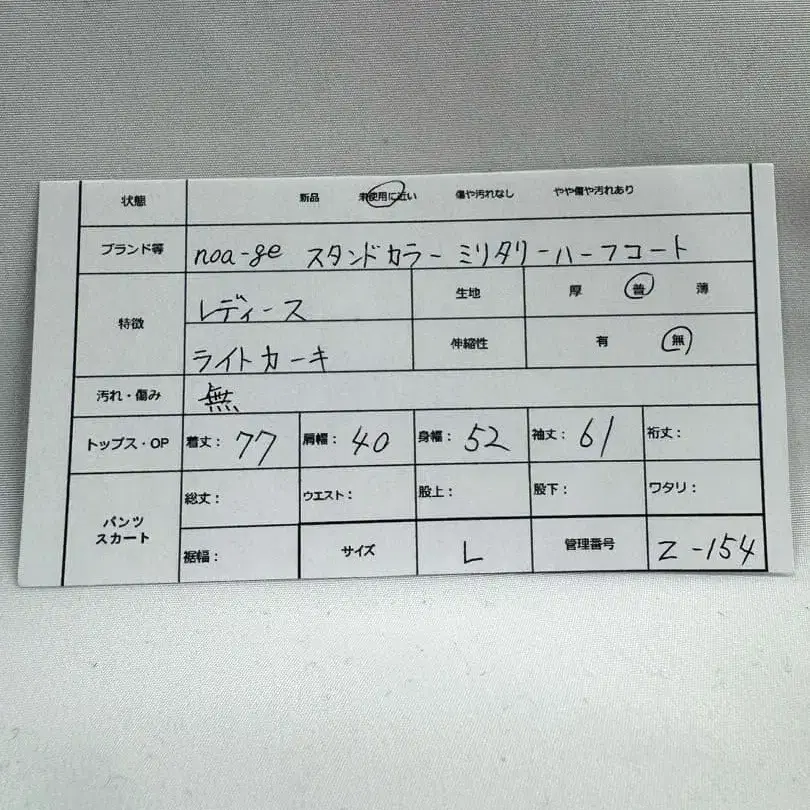 状態 新品 未使用に近い 傷や汚れなし やや傷や汚れあり
ブランド等 noa-ge スタンドカラー ミリタリーハーフコート
特徴 レディース 生地 厚 普 薄
ライトカーキ 伸縮性 有 無
汚れ・傷み 無
トップス・OP 着丈: 77 肩幅: 40 身幅: 52 袖丈: 61 裄丈:
パンツ スカート 総丈: ウエスト: 股上: 股下: ワタリ:
裾幅: サイズ L 管理番号 Z-154